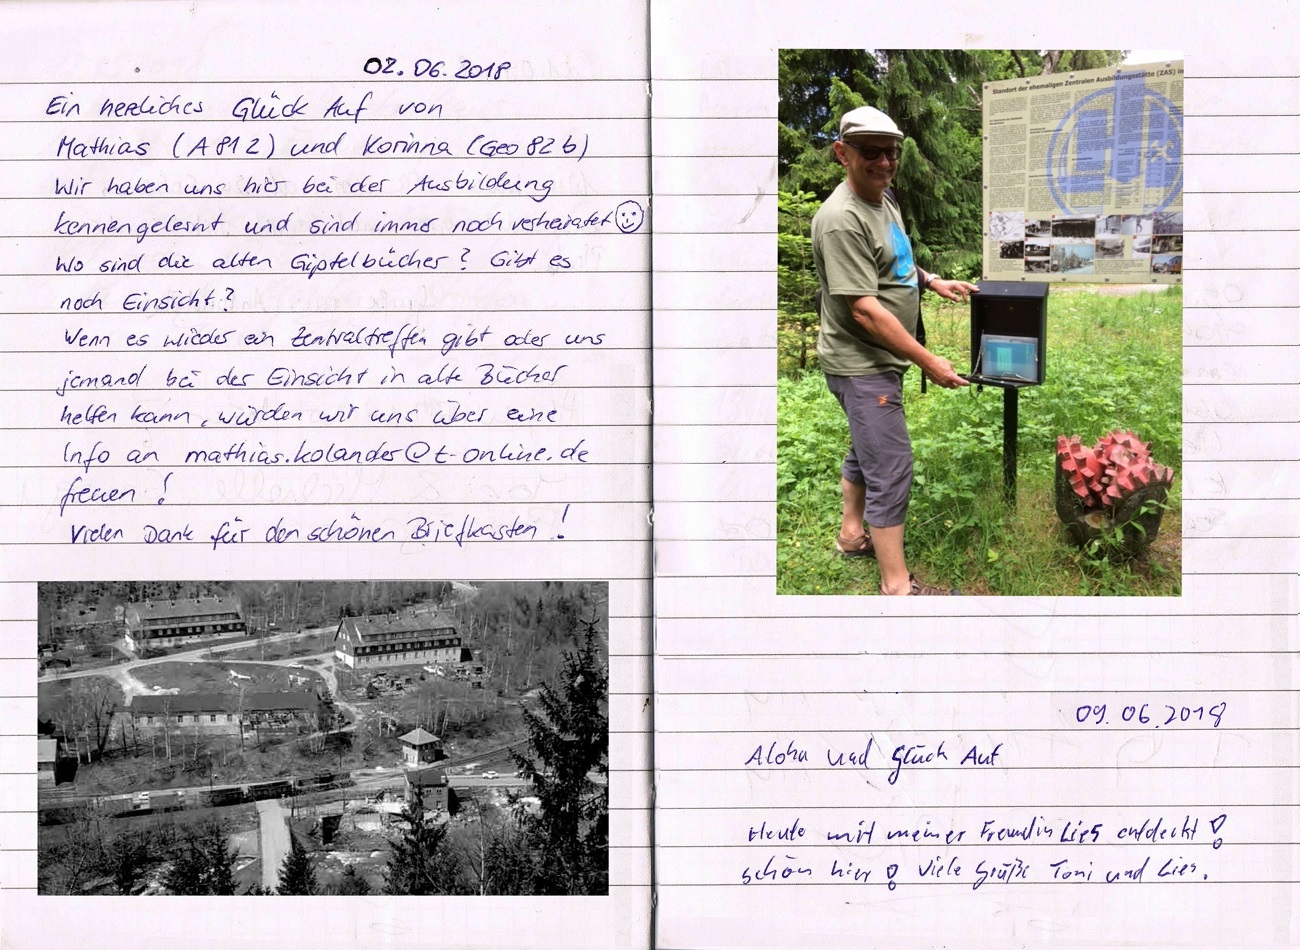 02.06.2018
Ein herzliches Glück Auf von
Mathias (A812) und Korinna (Geo 82 b)
Wir haben uns hier bei der Ausbildung
kennengelernt und sind immer noch verheiratet
Wo sind die alten Gipfelbücher? Gibt es
noch Einsicht?
Wenn es wieder ein Zentraltreffen gibt oder uns
jemand bei der Einsicht in alte Bücher
helfen kann, würden wir uns über eine
Info an mathias.kolander@t-online.de
freuen!
Vielen Dank für den schönen Briefkasten!
Standort der ehemaligen Zentralen Ausbildungsstätte (ZAS) in
09.06.2018
Aloha und Glück Auf
Heute mit meiner Freundin Lies entdeckt!
schön hier! Viele Grüße Toni und Lies.